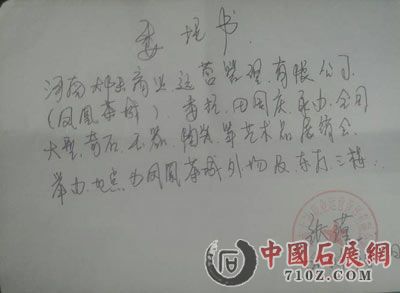 委托书
河南 商业运营管理有限公司
(凤凰茶城)委托田国庆 全国
大型奇石、玉器、陶瓷等艺术品展销会
举办地点为凤凰茶城外场及东方三楼
中国石展网
710Z.COM